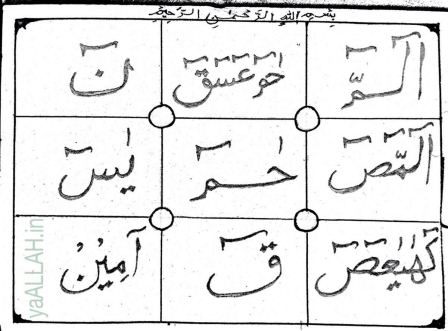 بِسْمِ اللهِ الرَّحْمٰنِ الرَّحِيْمِ
الٓـمّٓ حٰمٓ عٓسٓقٓ نٓ
الٓمّٓصٓ حٰـمٓ يٰسٓ
كٓهٰيٰعٓصٓ قٓ آمِيْنُ
yaALLAH.in